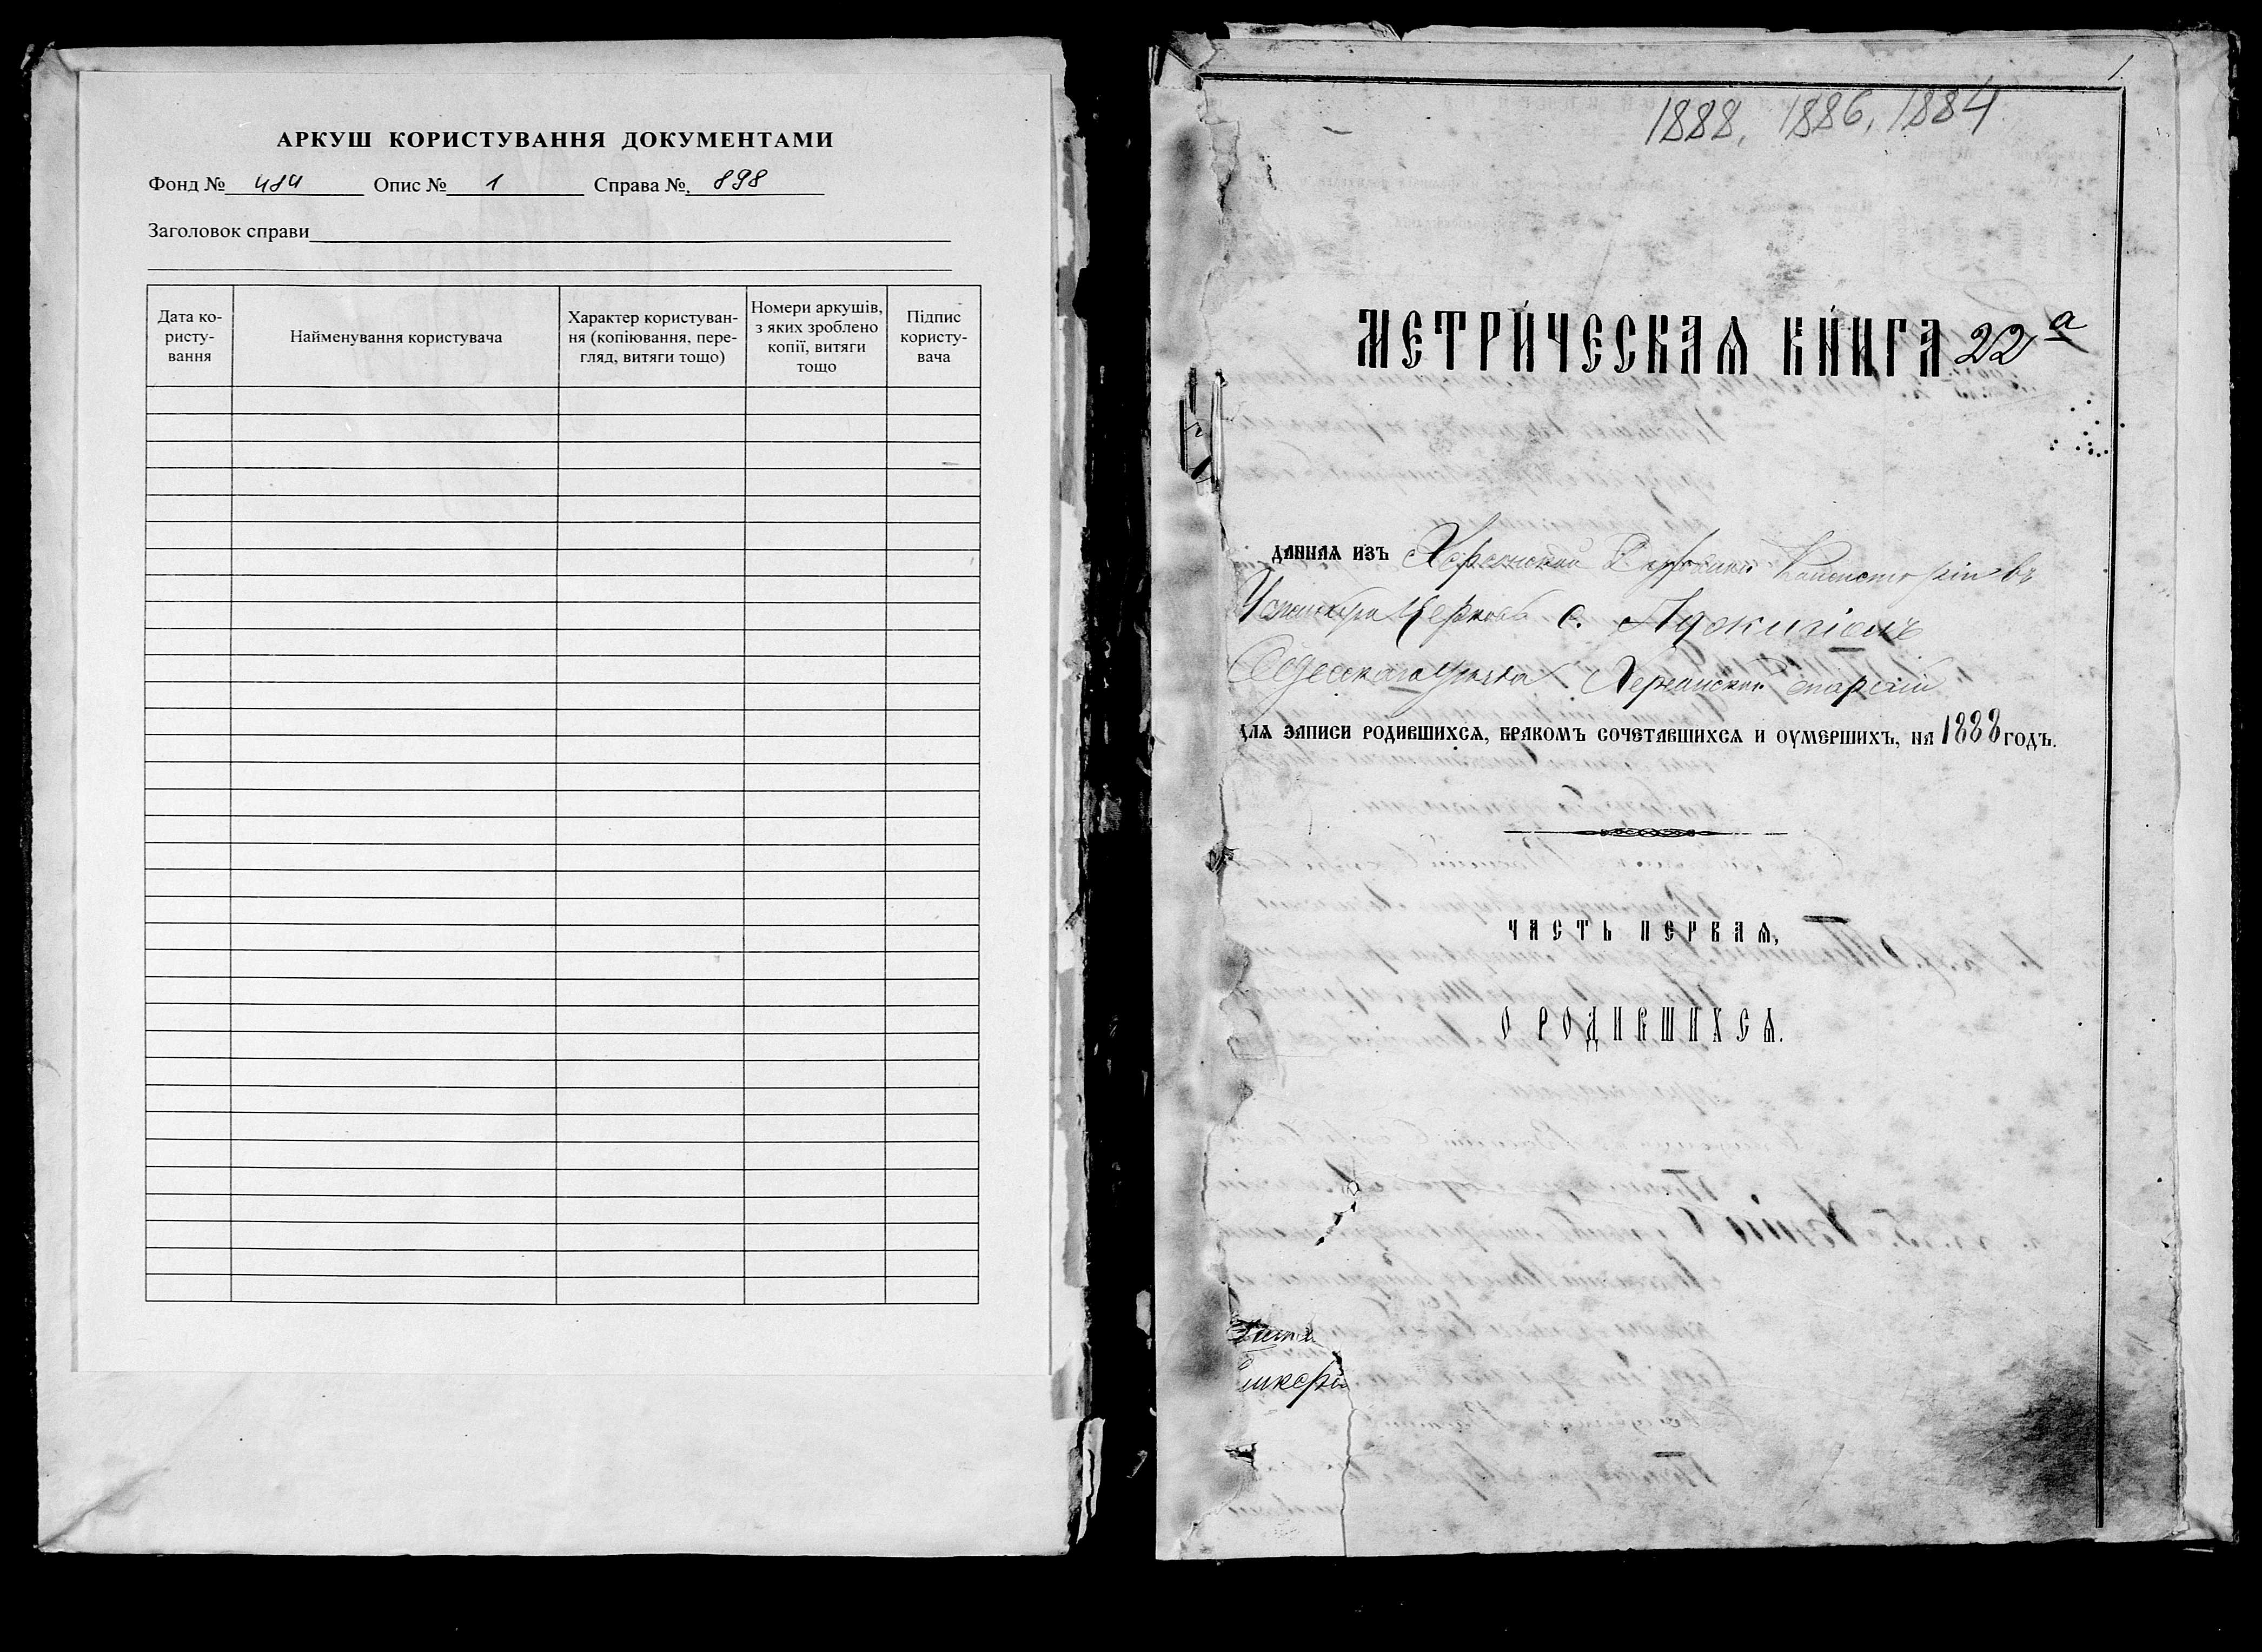 АРКУШ КОРИСТУВАННЯ ДОКУМЕНТАМИ
Фонд № 484 Опис № 1 Справа № 898
Заголовок справи
Дата ко-
ристу-
вання
Найменування користувача
Характер користуван-
ня (копіювання, пере-
гляд, витяги тощо)
Номери аркушів,
з яких зроблено
копії, витяги
тощо
Підпис
користу-
вача
1
1888, 1886, 1884
МЕТРИЧЕСКАѦ КНИГА 22а
ДАННАѦ ИЗЪ Херсонской Духовной Консисторіи въ
Успенскую церковь с. Аджигіолъ
Одесскаго уѣзда Херсонской епархіи
ДЛѦ ЗАПИСИ РОДИВШИХСѦ, БРАКОМЪ СОЧЕТАВШИХСѦ И ОУМЕРШИХЪ, НА 1888 ГОДЪ.
ЧАСТЬ ПЕРВАѦ,
О РОДИВШИХСѦ.